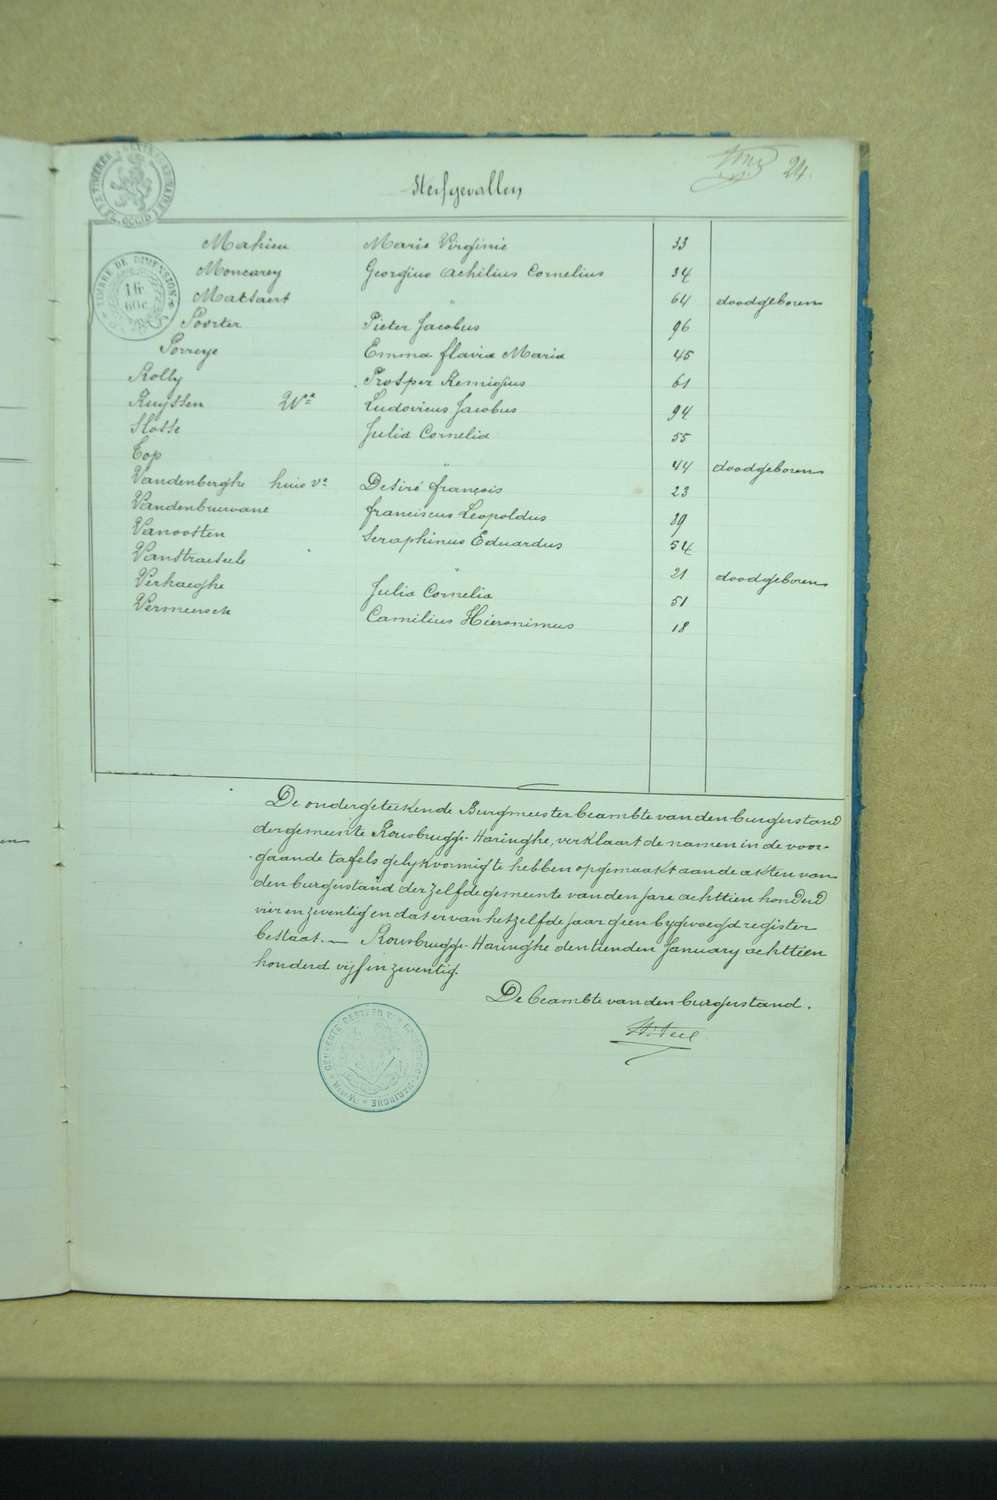 24.
Sterfgevallen
Mahieu Marie Virginie 33
Moncarey Georgius Achilius Cornelius 34
Matsaert " 64 doodgeboren
Poorter Pieter Jacobus 96
Porreye Emma flavia Maria 45
Rolly Prosper Remigius 61
Ruyssen Wᵉ Ludovicus Jacobus 94
Slosse Julia Cornelia 55
Top " 44 doodgeboren
Vandenberghe huis vᵉ Desiré françois 23
Vandenbruwane franciscus Leopoldus 89
Vanoosten Seraphinus Eduardus 54
Vanstraeseele " 21 doodgeboren
Verhaeghe Julia Cornelia 51
Vermeersch Camilius Hieronimus 18
TIMBRE DE DIMENSION
De ondergeteekende Burgmeester beambte van den burgerstand
der gemeente Rousbrugge-Haringhe, verklaart de namen in de voor-
gaande tafels gelykvormig te hebben opgemaakt aan de akten van
den burgerstand der zelfde gemeente van den jare achttien honderd
vier en zeventig en dat er van hetzelfde jaar geen bygevoegd register
bestaat. — Rousbrugge-Haringhe den tienden January achttien
honderd vijf en zeventig.
De beambte van den burgerstand.